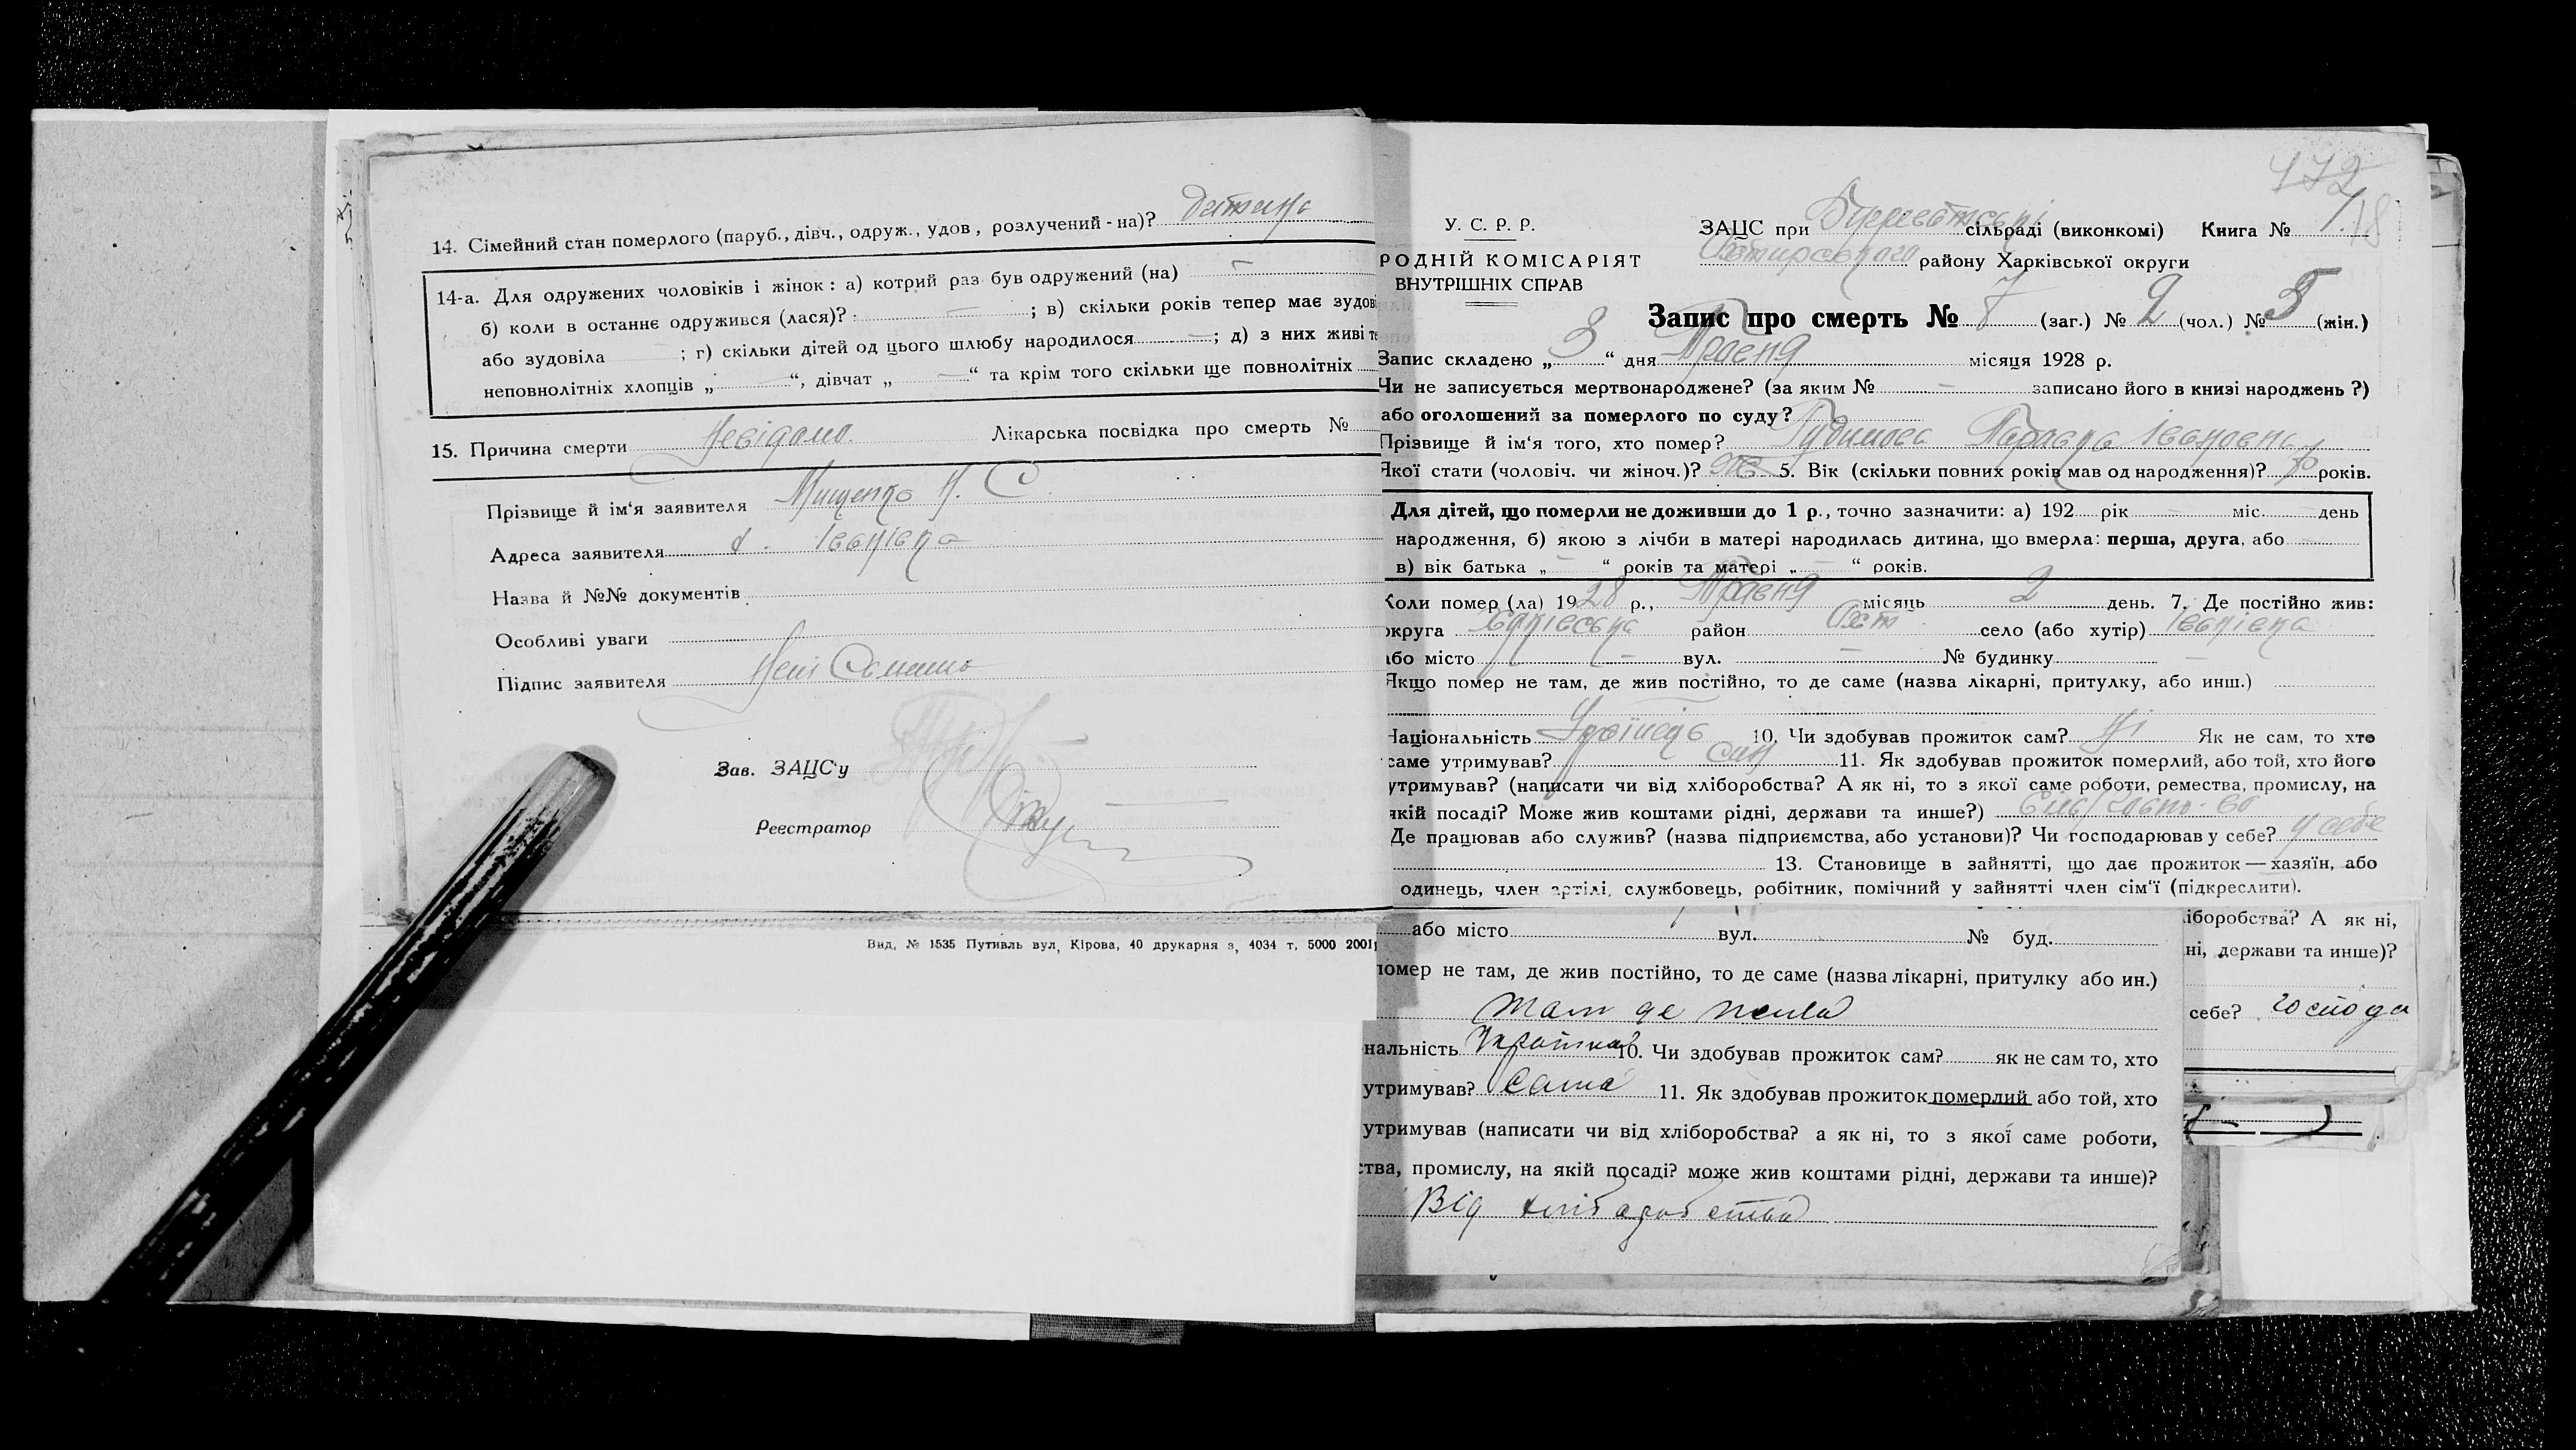 14. Сімейний стан померлого (паруб., дівч., одруж., удов, розлучений - на)? дитина
14-а. Для одружених чоловіків і жінок: а) котрий раз був одружений (на) —
б) коли в останнє одружився (лася)? — ; в) скільки років тепер має зудов
або зудовіла ; г) скільки дітей од цього шлюбу народилося — ; д) з них живі те
неповнолітніх хлопців „ — “, дівчат „ — “ та крім того скільки ще повнолітніх
15. Причина смерти Невідомо. Лікарська посвідка про смерть №
Прізвище й ім‘я заявителя Мищенко Н. С.
Адреса заявителя Іванівка
Назва й №№ документів
Особливі уваги
Підпис заявителя
Зав. ЗАЦС‘у
Реєстратор
Вид. № 1535 Путивль вул, Кірова, 40 друкарня з, 4034 т, 5000 2001
472
18
У. С. Р. Р.
РОДНІЙ КОМІСАРІЯТ
ВНУТРІШНІХ СПРАВ
ЗАЦС при сільраді (виконкомі) Книга № 1
Охтирського району Харківської округи
Запис про смерть № 7 (заг.) № 2 (чол.) № 5 (жін.)
Запис складено „ 3 “ дня Травня місяця 1928 р.
Чи не записується мертвонароджене? (за яким № — записано його в книзі народжень ?)
або оголошений за померлого по суду?
Прізвище й ім‘я того, хто помер? Іванівна
Якої стати (чоловіч. чи жіноч.)? жін 5. Вік (скільки повних років мав од народження)? років.
Для дітей, що померли не доживши до 1 р., точно зазначити: а) 192 рік — міс. день
народження, б) якою з лічби в матері народилась дитина, що вмерла: перша, друга, або
в) вік батька „ — “ років та матері „ — “ років.
Коли помер (ла) 1928 р., Травня місяць 2 день. 7. Де постійно жив:
округа Харківська район Охт. село (або хутір) Іванівка
або місто — вул. — № будинку —
Якщо помер не там, де жив постійно, то де саме (назва лікарні, притулку, або инш.)
Національність Українець 10. Чи здобував прожиток сам? Ні Як не сам, то хто
саме утримував? син 11. Як здобував прожиток померлий, або той, хто його
утримував? (написати чи від хліборобства? А як ні, то з якої саме роботи, ремества, промислу, на
якій посаді? Може жив коштами рідні, держави та инше?)
Де працював або служив? (назва підприємства, або установи)? Чи господарював у себе? у себе
13. Становище в зайнятті, що дає прожиток — хазяїн, або
одинець, член артілі, службовець, робітник, помічний у зайнятті член сім‘ї (підкреслити).
або місто вул. № буд.
помер не там, де жив постійно, то де саме (назва лікарні, притулку або ин.)
там де жила
нальність Українка 10. Чи здобував прожиток сам? як не сам то, хто
утримував? сама 11. Як здобував прожиток померлий або той, хто
утримував (написати чи від хліборобства? а як ні, то з якої саме роботи,
ства, промислу, на якій посаді? може жив коштами рідні, держави та инше)?
Від хліборобства
іборобства? А як ні,
ні, держави та инше)?
себе? господа